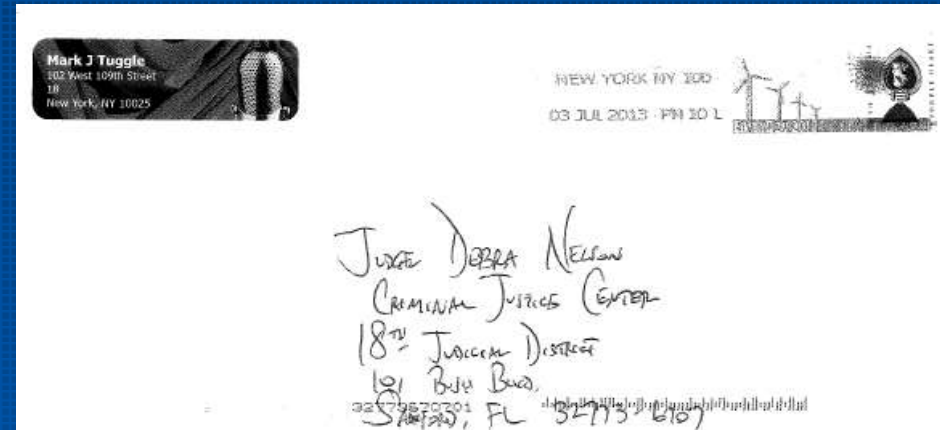 Mark J Tuggle
102 West 109th Street
18
New York, NY 10025
NEW YORK NY 100
03 JUL 2013 PM 10 L
PURPLE HEART
JUDGE DEBRA NELSON
CRIMINAL JUSTICE CENTER
18TH JUDICIAL DISTRICT
101 BUSH BLVD.
SANFORD, FL 32773-6707
32773670701